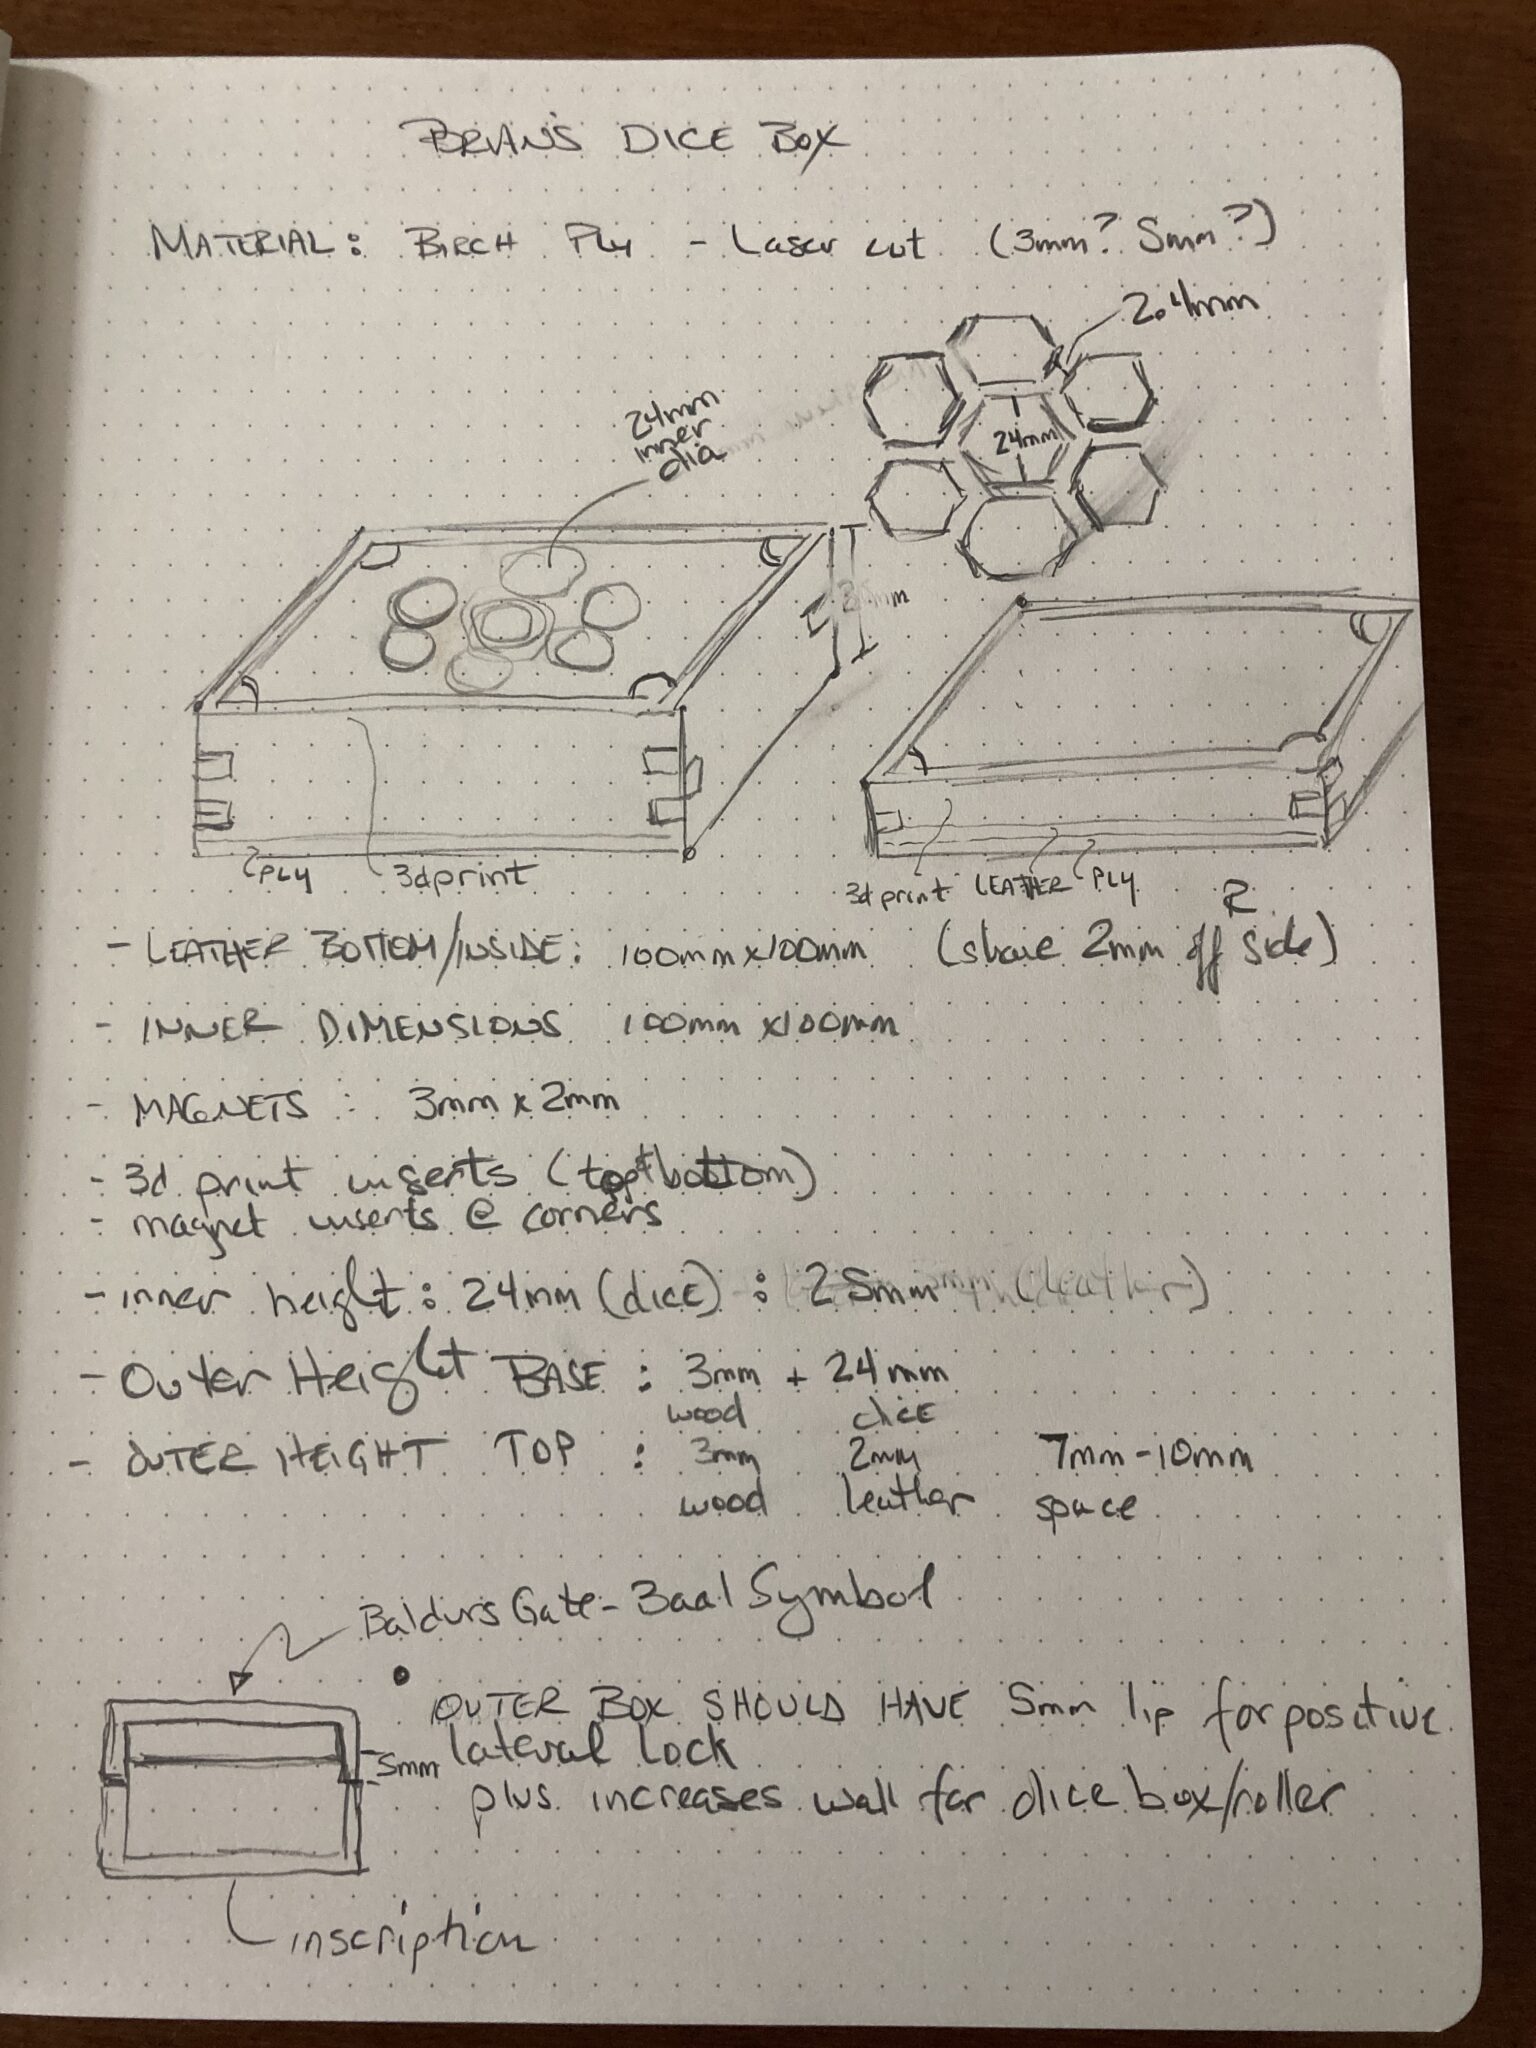 BRIAN'S DICE BOX
MATERIAL: BIRCH PLY - Laser cut (3mm? 5mm?)
2.4mm
24mm
inner
dia
24mm
mm
PLY
3d print
3d print LEATHER PLY
- LEATHER BOTTOM/INSIDE: 100mm x 100mm (shave 2mm off R side)
- INNER DIMENSIONS 100mm x 100mm
- MAGNETS: 3mm x 2mm
- 3d print inserts (top+bottom)
- magnet inserts @ corners
- inner height: 24mm (dice) : 25mm (leather)
- Outer Height BASE: 3mm + 24mm
wood dice
- OUTER HEIGHT TOP : 3mm 2mm 7mm-10mm
wood leather space
Baldurs Gate - Baal Symbol
• OUTER BOX SHOULD HAVE 5mm lip for positive
5mm lateral lock
plus increases wall for dice box/roller
inscription